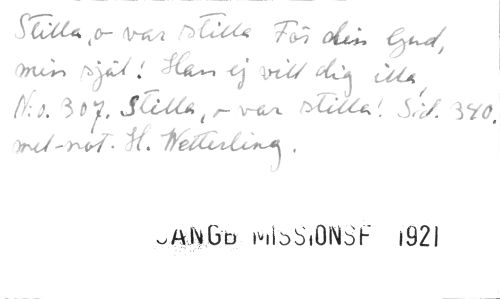 Stilla, o var stilla För din Gud,
min själ! Han ej vill dig illa,
N:o. 307. Stilla, o var stilla! Sid. 340.
mel-not. H. Wetterling.
SÅNGB MISSIONSF 1921